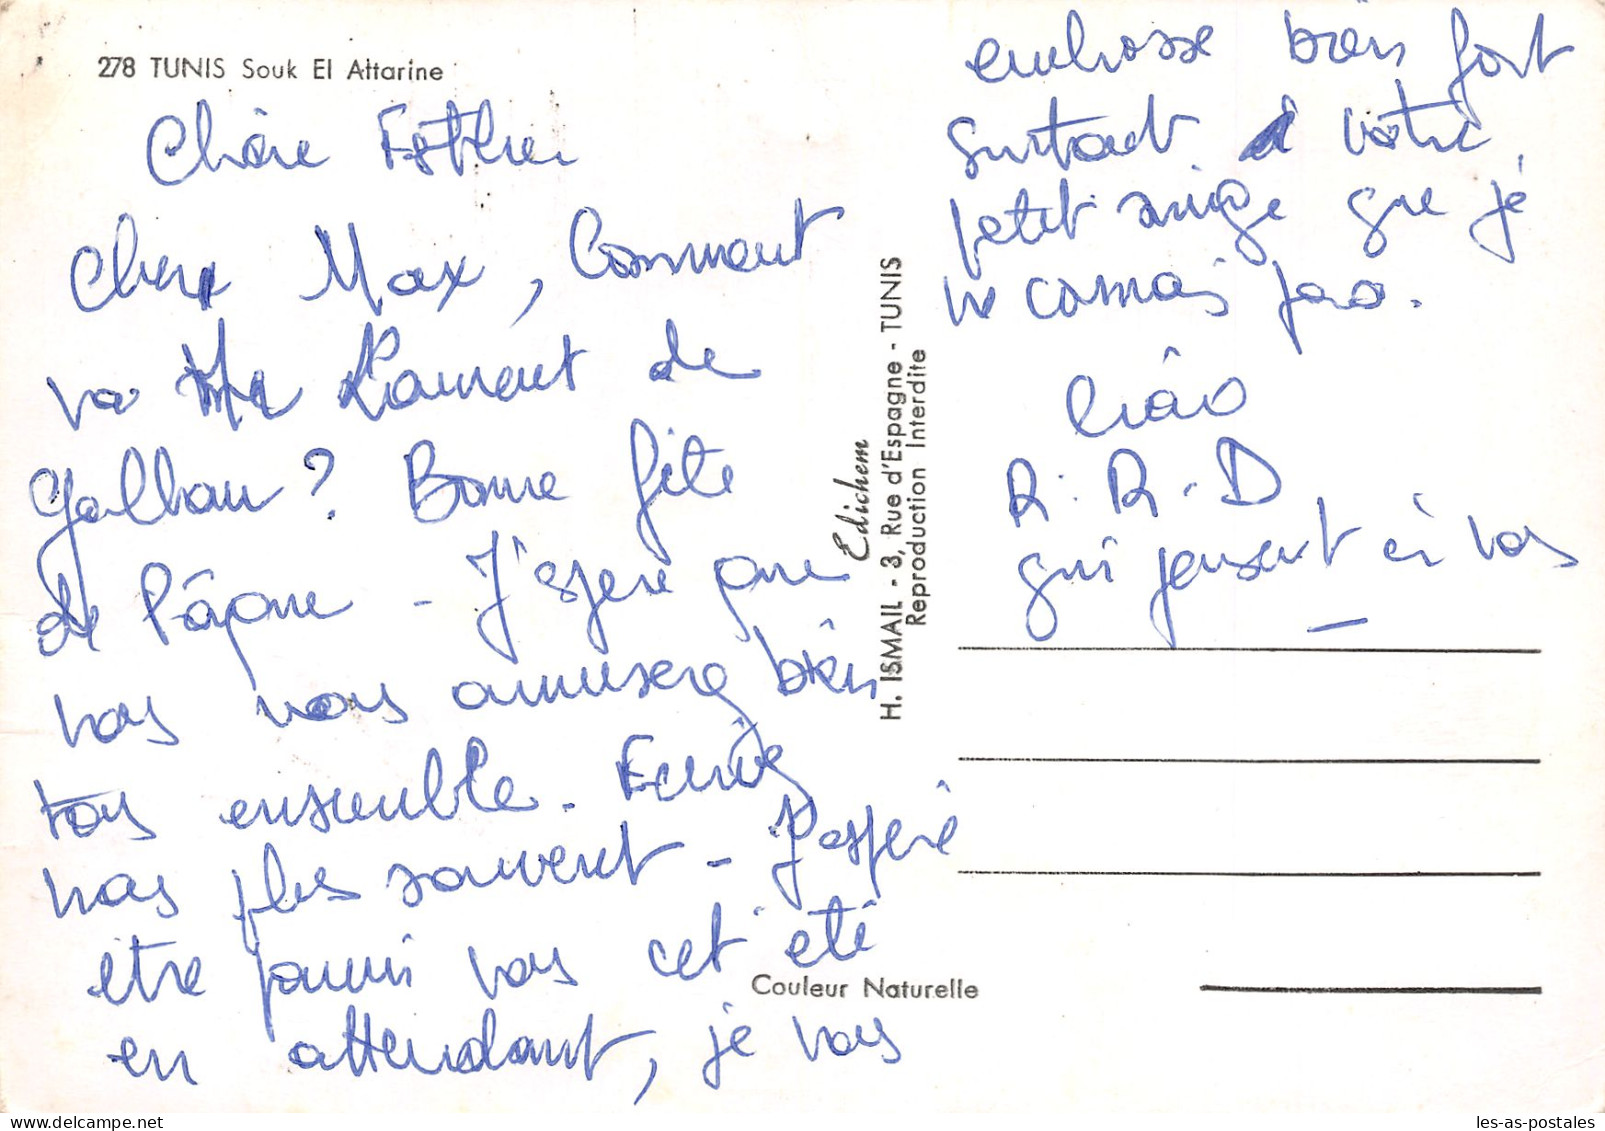 278 TUNIS Souk El Attarine
Chère Esther
Cher Max, Comment
va Mr Laurent de
Galbau ? Bonne fête
de Pâque - J'espère que
vous vous amuserez bien
tous ensemble. Ecrivez
nous plus souvent - J'espère
être parmi vous cet été
en attendant, je vous
embrasse bien fort
surtout à votre
petit singe que je
ne connais pas.
Ciào
R. R. D
qui pensent à vous
Edichem
H. ISMAIL - 3, Rue d'Espagne - TUNIS
Reproduction Interdite
Couleur Naturelle
les-as-postales